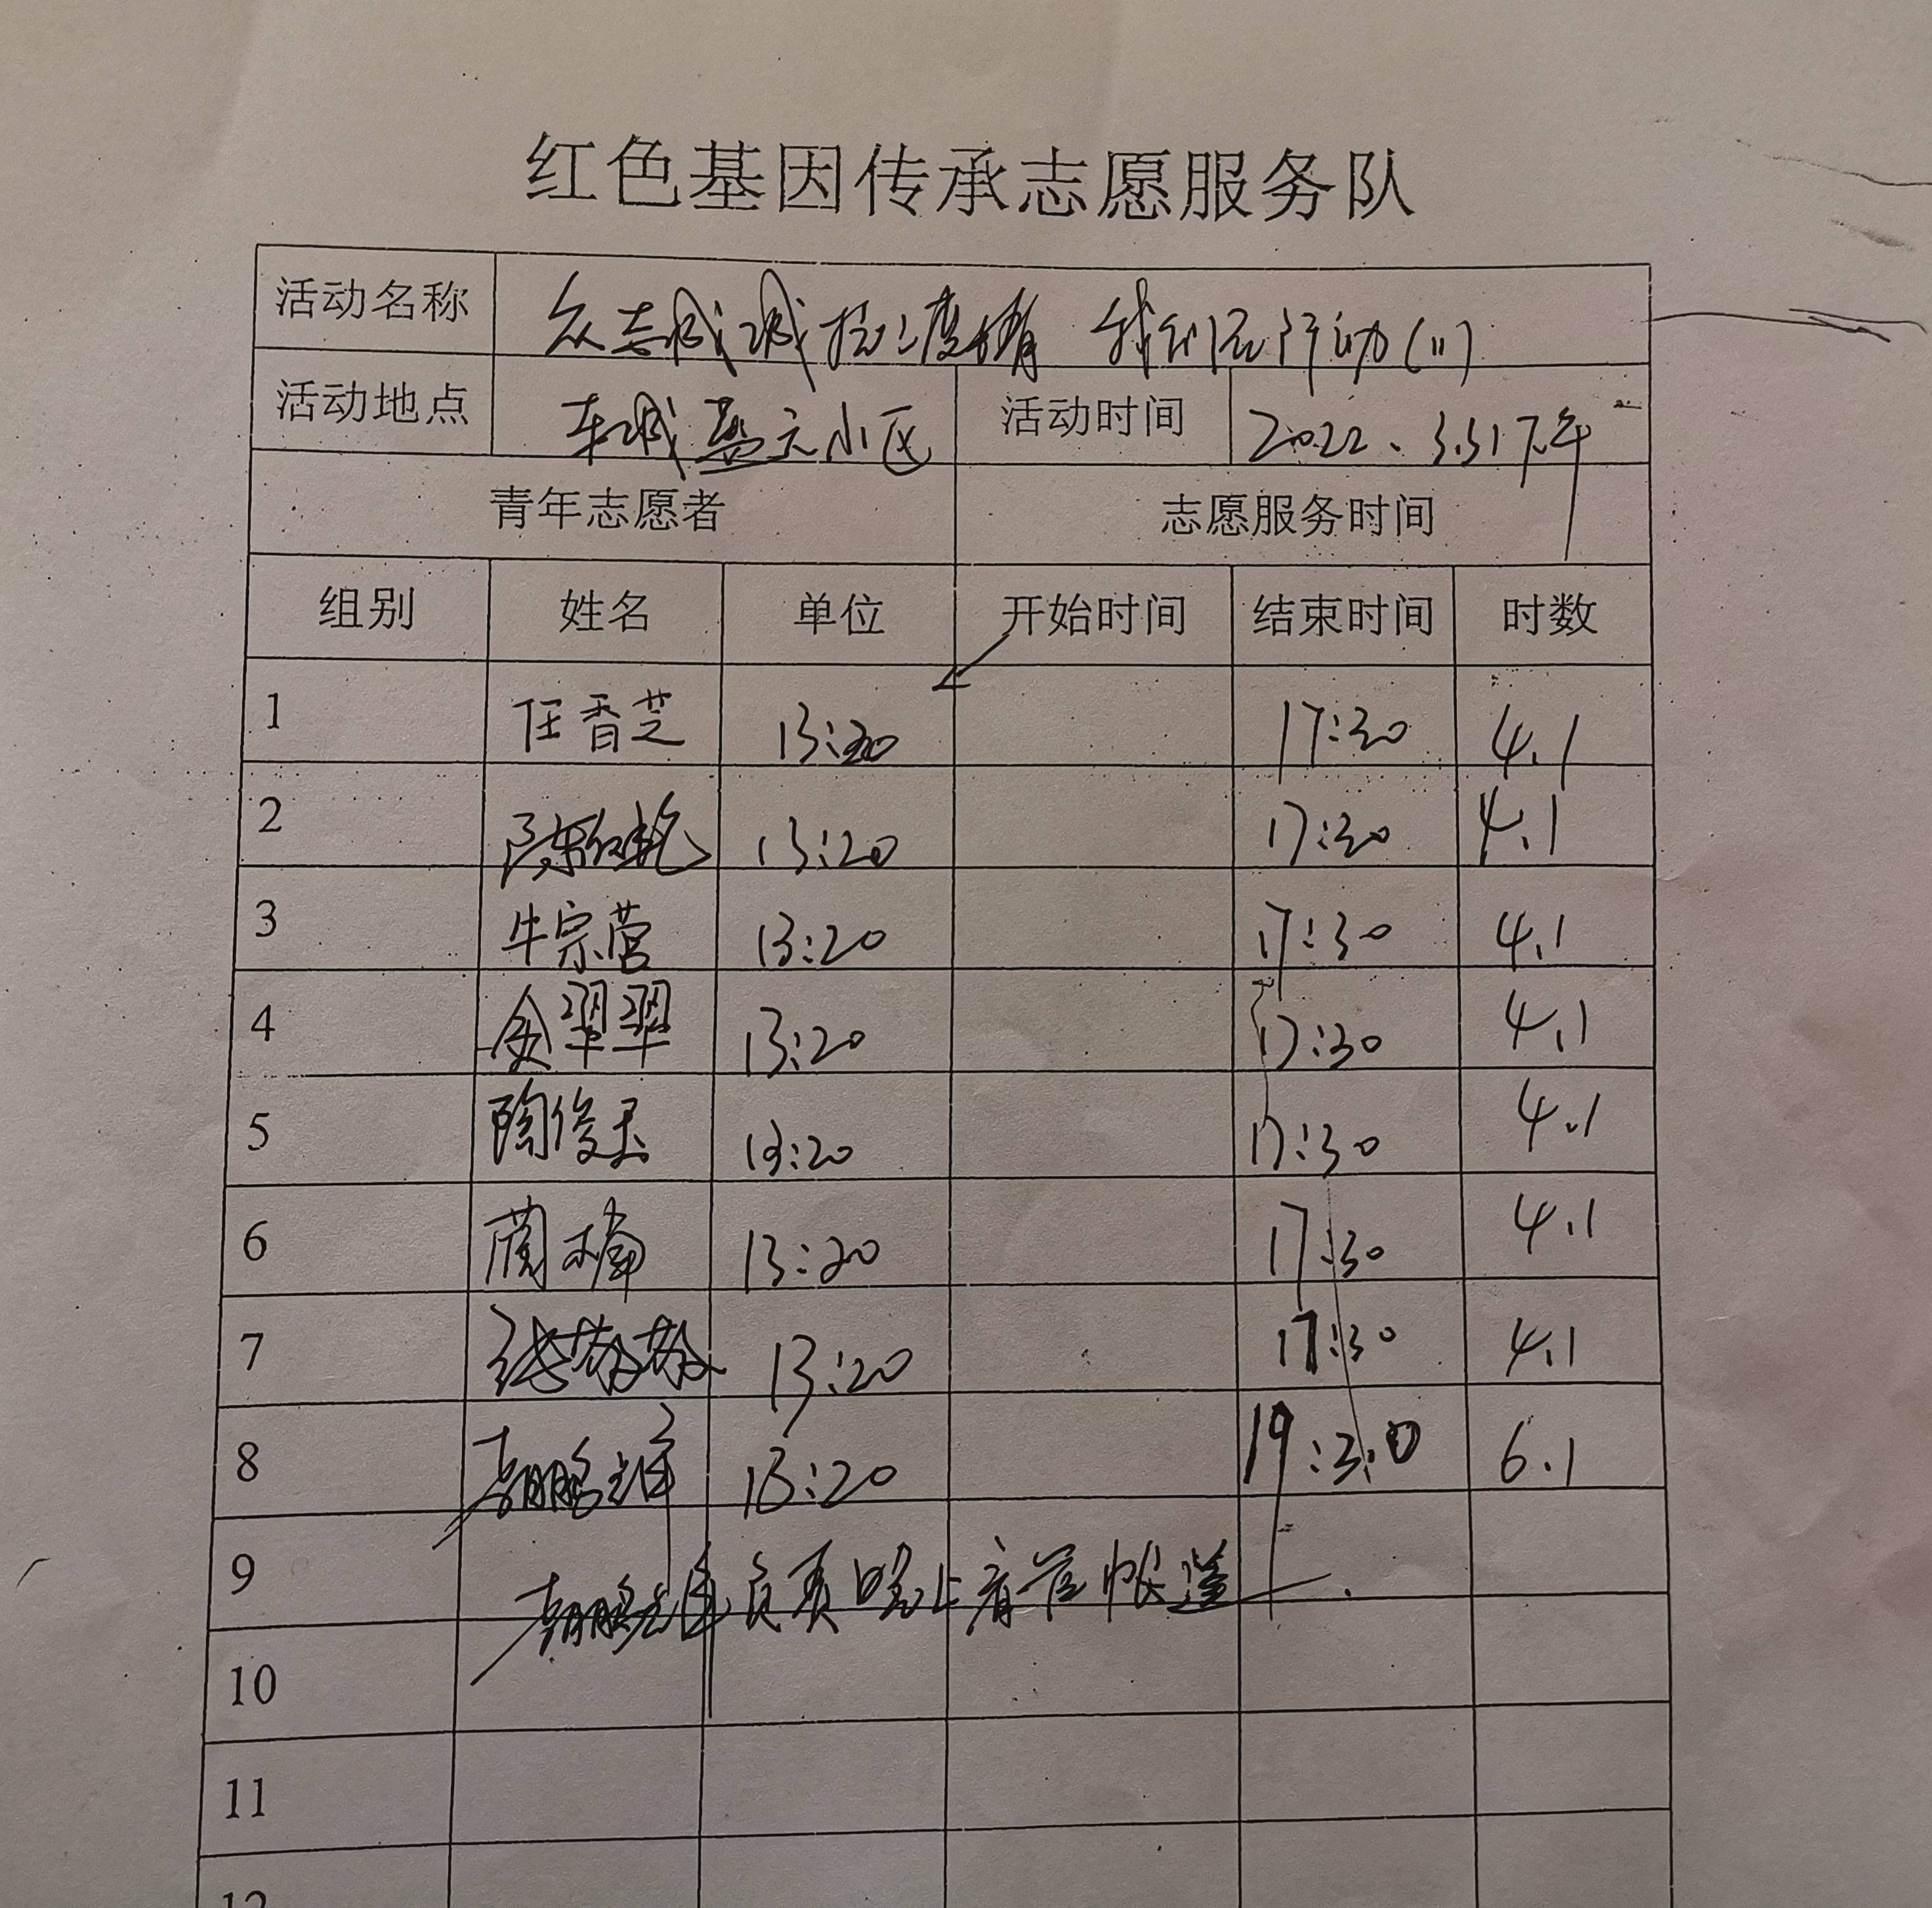 红色基因传承志愿服务队
活动名称 众志成城抗疫情 我们在行动(11)
活动地点 东城盈元小区 活动时间 2022、3.31下午
青年志愿者 志愿服务时间
组别 姓名 单位 开始时间 结束时间 时数
1 任香芝 13:20 17:30 4.1
2 陈红艳 13:20 17:30 4.1
3 牛宗营 13:20 17:30 4.1
4 金翠翠 13:20 17:30 4.1
5 陶俊玉 13:20 17:30 4.1
6 蔺楠 13:20 17:30 4.1
7 张莎莎 13:20 17:30 4.1
8 13:20 19:30 6.1
9 负责晚上看管帐篷
10
11
12